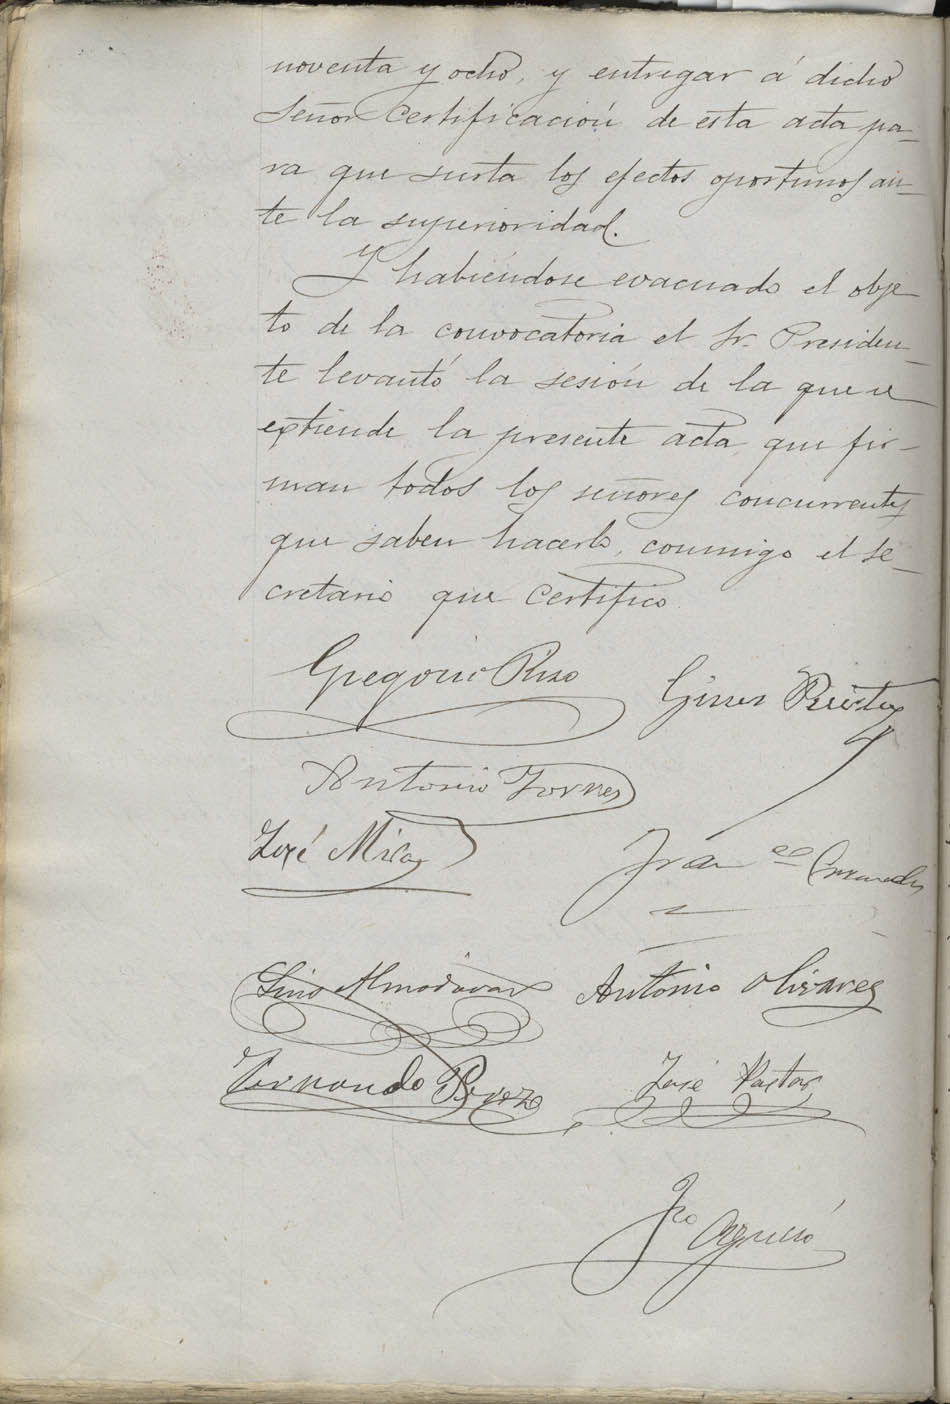 noventa y ocho, y entregar á dicho
Señor Certificación de esta acta pa_
ra que surta los efectos oportunos an_
te la superioridad.
Y habiéndose evacuado el obje_
to de la convocatoria el Sr. Presiden_
te levantó la sesión de la que se
extiende la presente acta, que fir_
man todos los señores concurrentes
que saben hacerlo, conmigo el Se_
cretario que certifico.
Gregorio Rizo
Gines
Antonio Torres
José Mira
Fran co
Lino Almodovar
Antonio Olivares
Fernando Perez
José Pastor
Fco Asencio